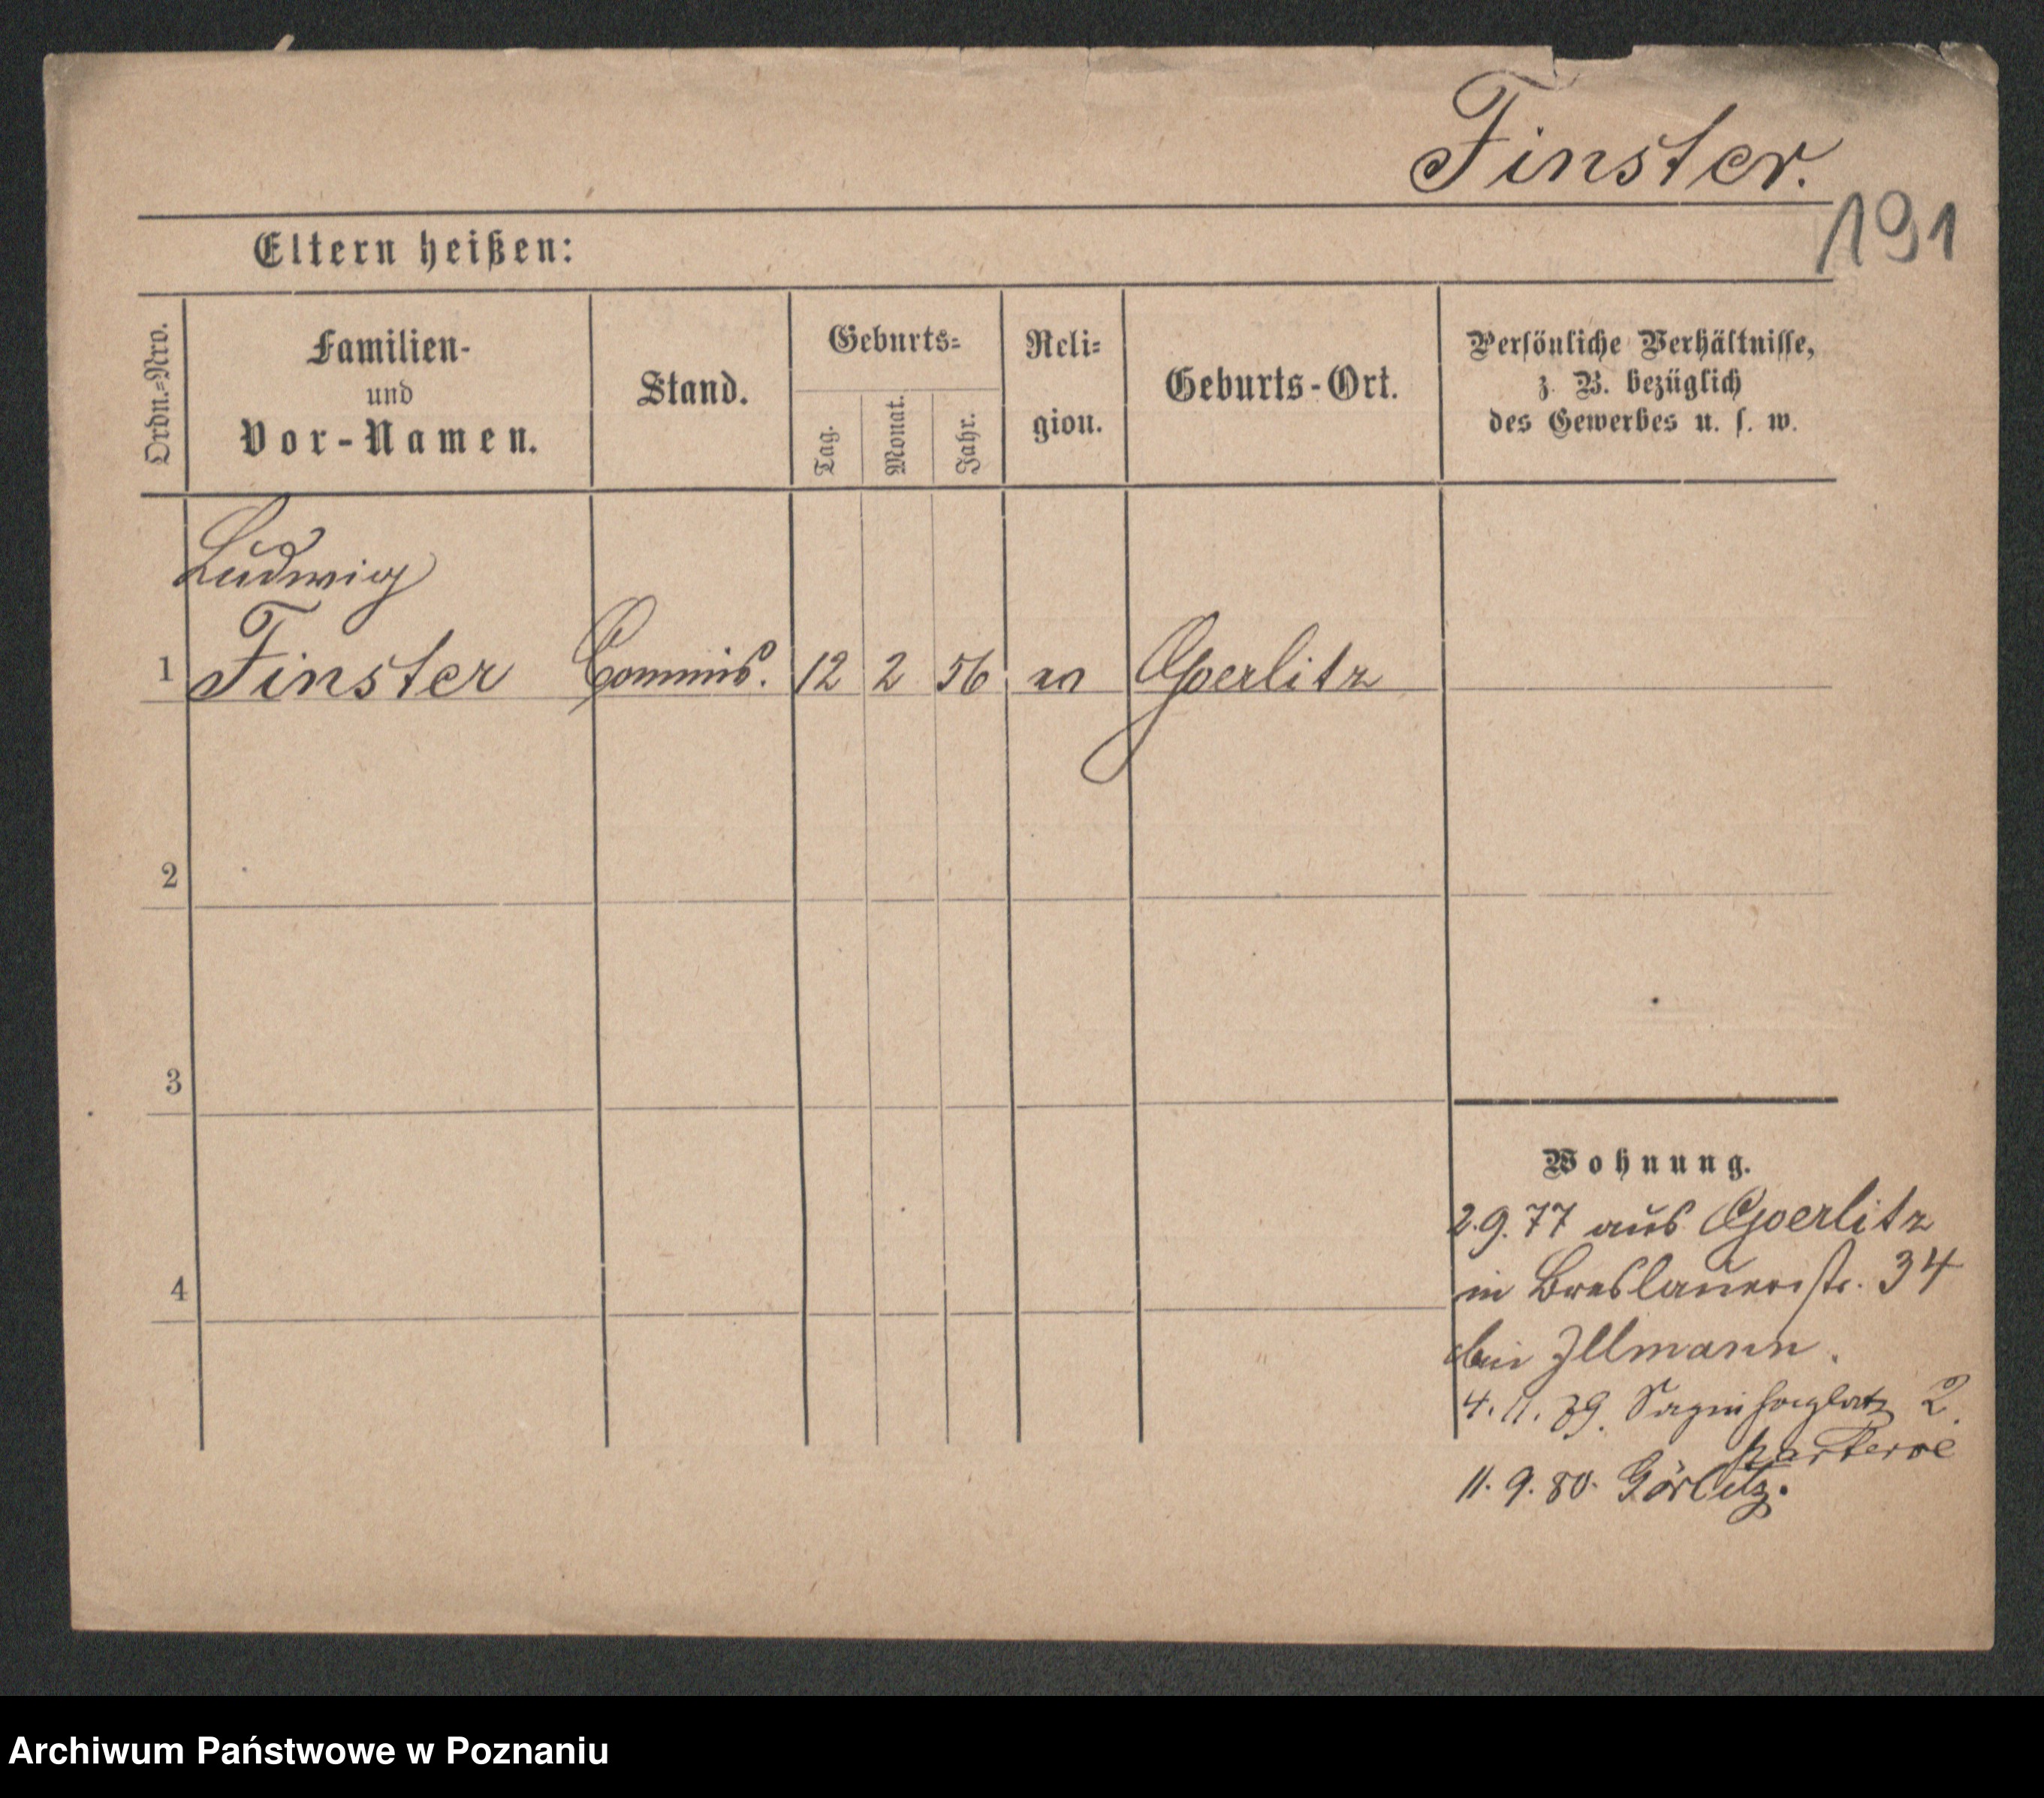 Finster.
191
Eltern heißen:
Ordn.=Nro.
Familien-
und
Vor-Namen.
Stand.
Geburts=
Tag.
Monat.
Jahr.
Reli=
gion.
Geburts-Ort.
Persönliche Verhältnisse,
z. B. bezüglich
des Gewerbes u. s. w.
Ludwig
1 Finster Commis. 12 2 56 ev Goerlitz
2
3
4
Wohnung.
2.9.77 aus Goerlitz
in Breslauerstr. 34
bei Illmann.
4. 11. 79. Sapiehaplatz 2.
parterre
11. 9. 80. Görlitz.
Archiwum Państwowe w Poznaniu